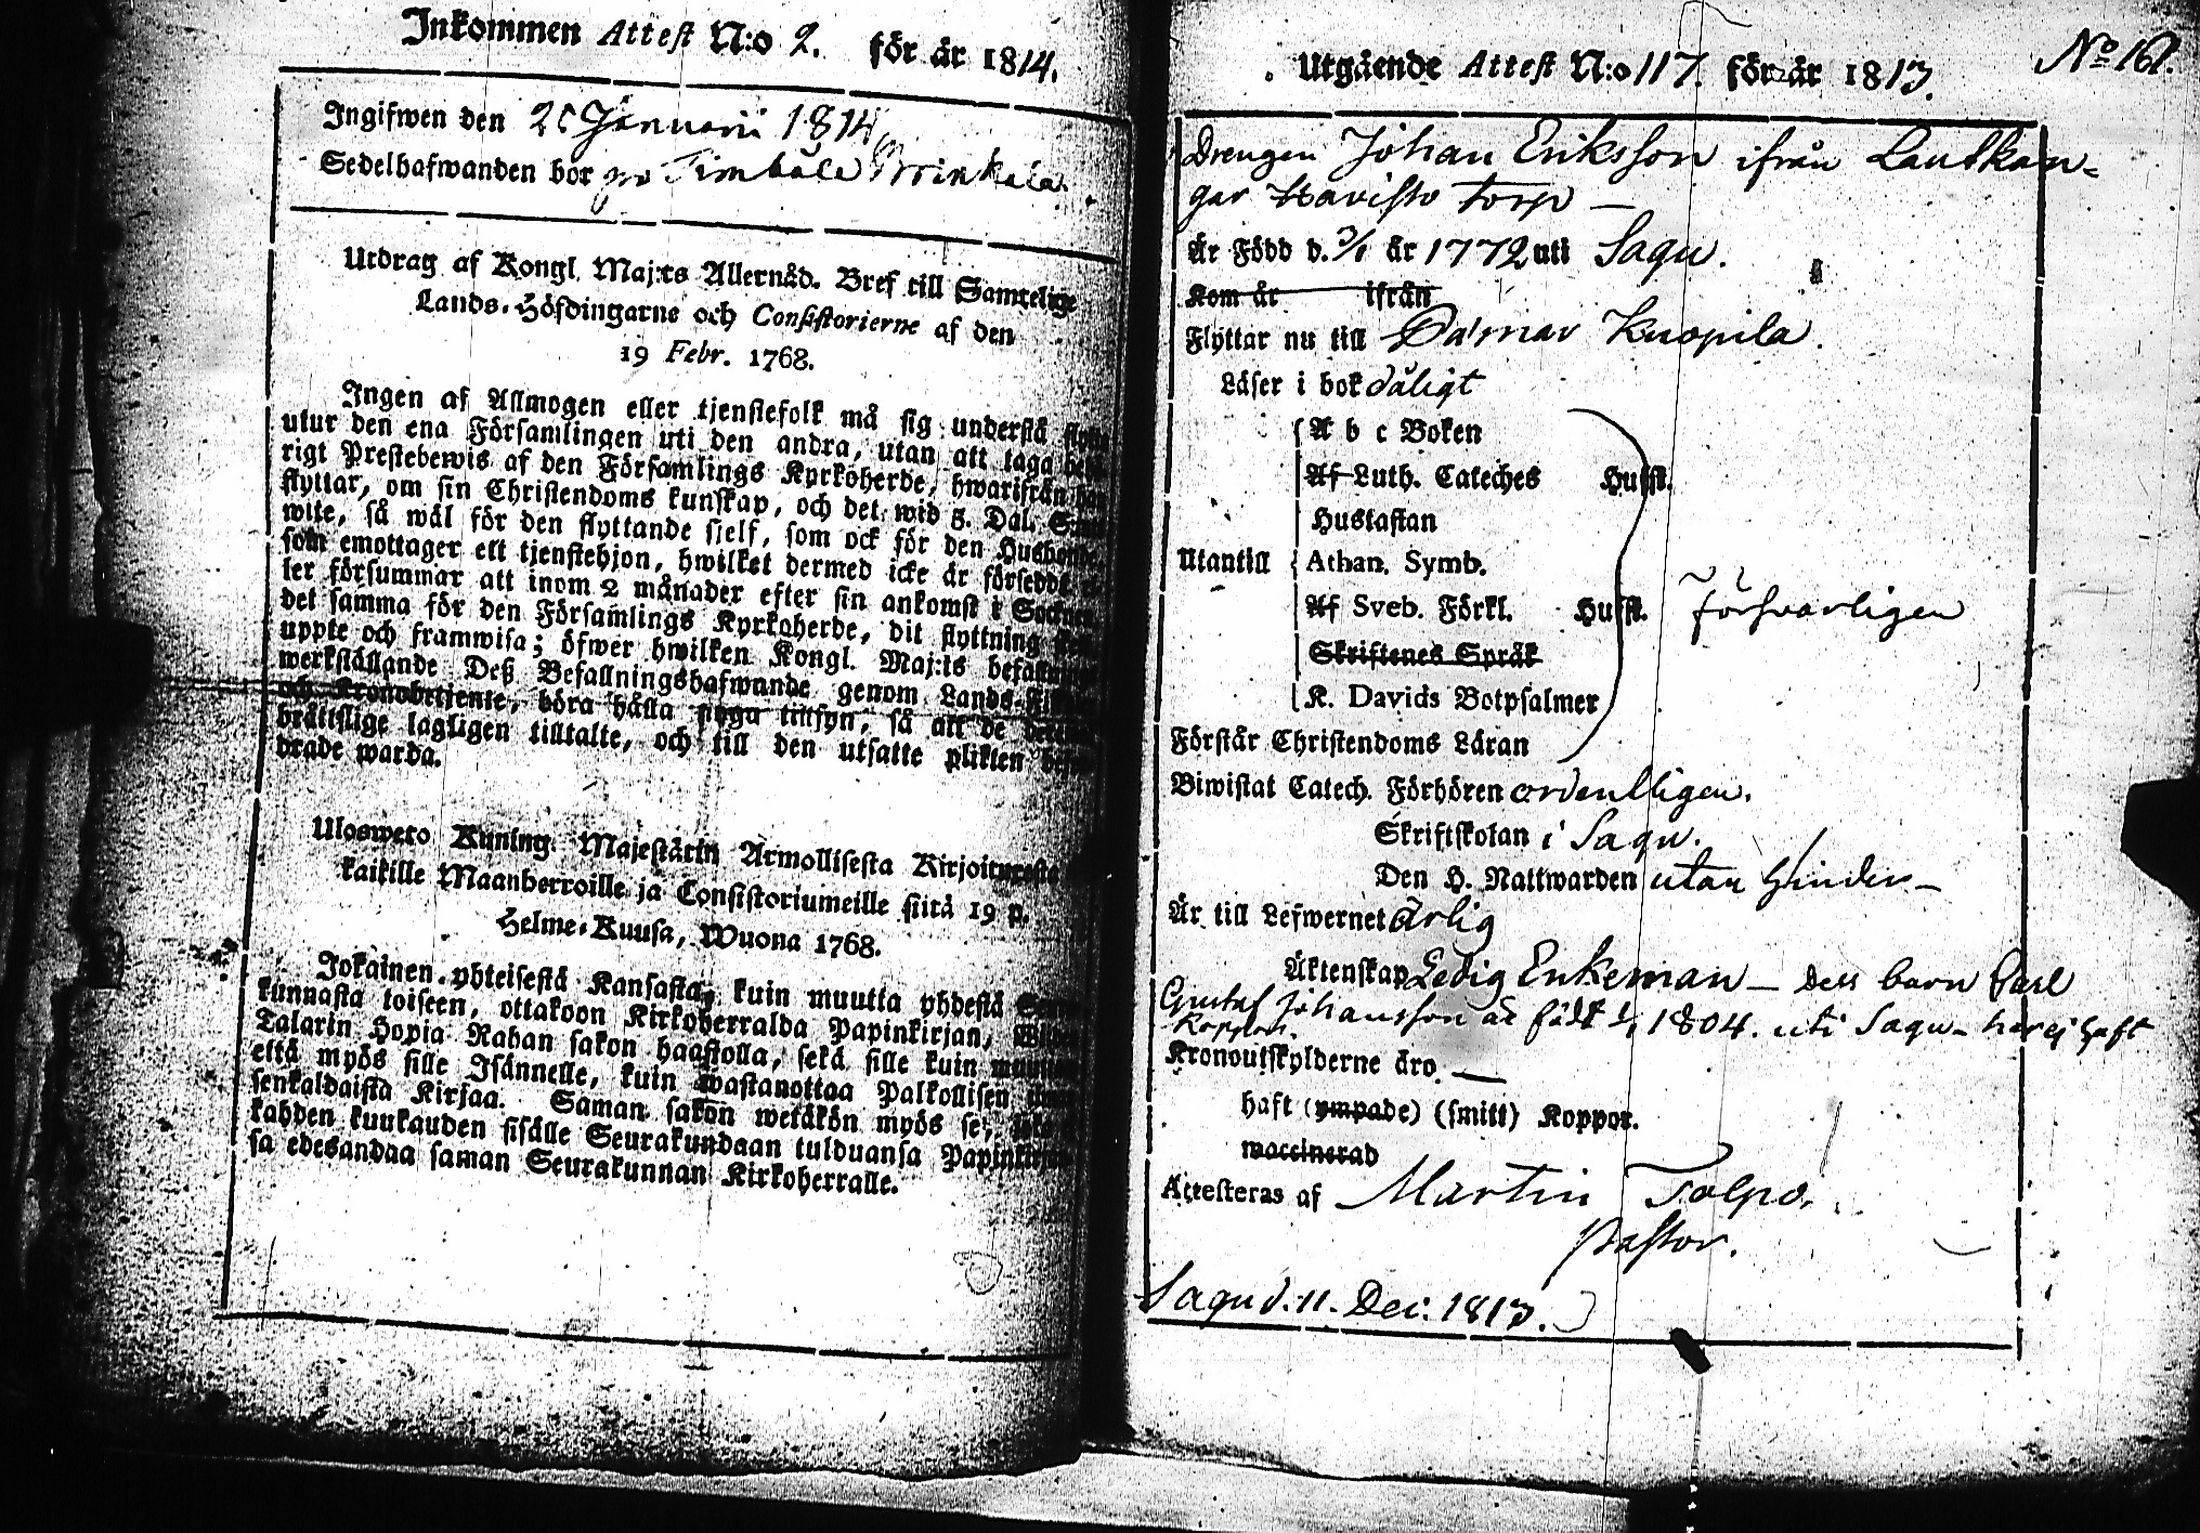 Inkommen Attest N:o 2. för år 1814.
Ingifwen den Januarii 1814
Sedelhafwanden bor på Timbåle
Utdrag af Kongl. Maj:ts Allernåd. Bref till Samtelige
Lands-Höfdingarne och Consistorierne af den
19 Febr. 1768.
Ingen af Allmogen eller tjenstefolk må sig understå
utur den ena Församlingen uti den andra, utan att taga
rigt Prestebewis af den Församlings Kyrkoherde, hwarifrån han
flyttar, om sin Christendoms kunskap, och det wid 5. Dal.
wite, så wäl för den flyttande sjelf, som ock för den
som emottager ett tjenstehjon, hwilket dermed icke är försedt
ler försummar att inom 2 månader efter sin ankomst i
det samma för den Församlings Kyrkoherde, dit flyttning
uppte och framwisa; öfwer hwilken Kongl. Maj:ts
werkställande Deß Befallningshafwande genom Lands-
och Kronobetjente, böra hålla noga tillsyn, så att de
brättslige lagligen tilltalte, och till den utsatte plikten
drade warda.
Uloswero Kuning. Majestärin Armollisesta Kirjoituresta
kaikille Maanherroille ja Consistoriumeille siitä 19 p.
Helme-Kuusa, Wuona 1768.
Jokainen yhteisestä Kansasta, kuin muutta yhdestä
kunnasta toiseen, ottakoon Kirkoherralda Papinkirjan,
Talarin Hopia Rahan sakon haastolla, sekä sille kuin
että myös sille Isännelle, kuin wastanottaa Palkollisen
senkaldaista Kirjaa. Saman sakon wetäkön myös se,
kahden kuukauden sisälle Seurakundaan tulduansa
sa edesandaa saman Seurakunnan Kirkoherralle.
No 161.
Utgående Attest N:o 117. för år 1813.
Drengen Johan Eriksson ifrån Lautkan-
gar Havisto torp —
Är Född d. år 1772 uti Sagu.
Kom år ifrån
Flyttar nu till Kuopila.
Läser i bok dåligt
A b c Boken
Af Luth. Cateches Husst.
Hustaflan
Utantill Athan. Symb.
Af Sveb. Förkl. Husst. försvarligen
Skriftenes Språk
K. Davids Botpsalmer
Förstår Christendoms Läran
Biwistat Catech. Förhören ordentligen.
Skriftskolan i Sagu.
Den H. Nattwarden utan hinder —
Är till Lefwernet ärlig
Äktenskap Ledig Enkeman — Dess barn Carl
Gustaf Johansson är född 1804. uti Sagu — har ej haft
Koppor.
Kronoutskylderne äro —
haft (ympade) (smitt) Koppor.
waccinerad
Attesteras af Martin Tolpo.
Pastor.
Sagu d. 11. Dec: 1813.